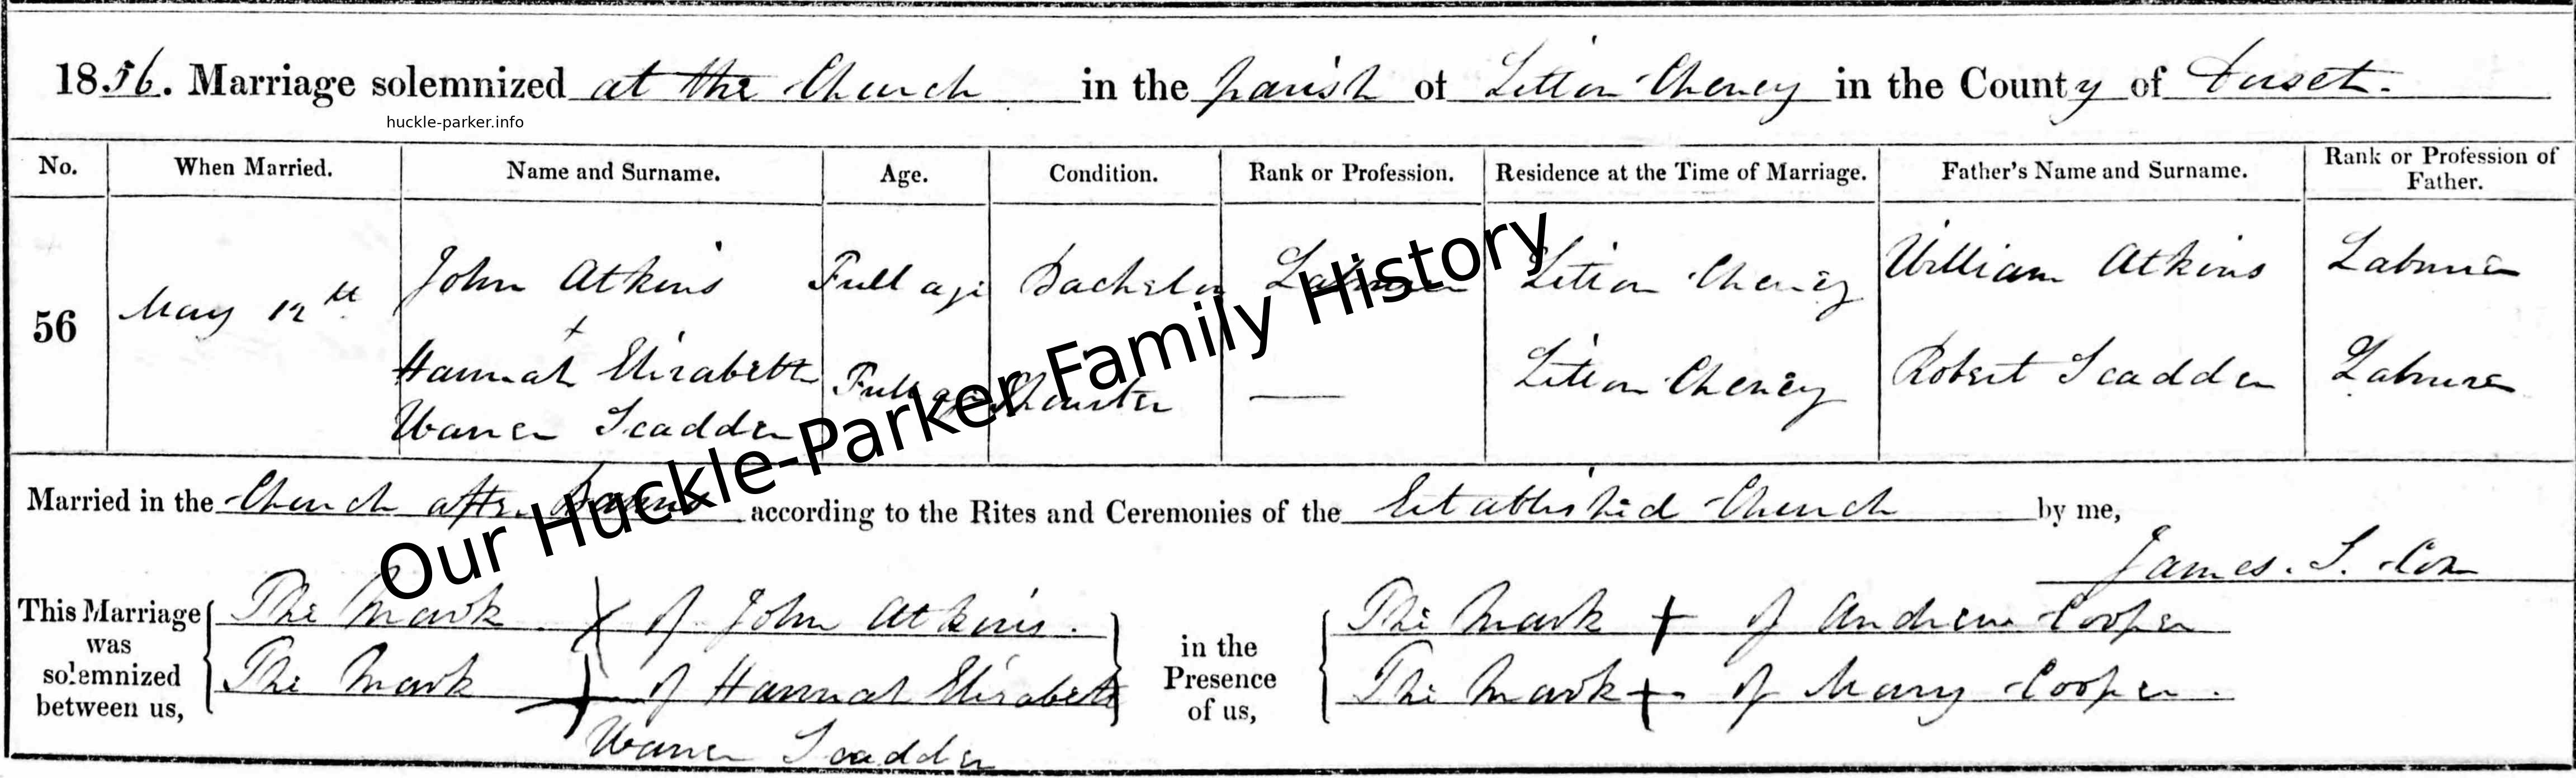 1856. Marriage solemnized at the Church in the parish of Litton Cheney in the County of Dorset.
huckle-parker.info
No. When Married. Name and Surname. Age. Condition. Rank or Profession. Residence at the Time of Marriage. Father's Name and Surname. Rank or Profession of Father.
56 May 12th John Atkins Full age Bachelor Labourer Litton Cheney William Atkins Labourer
+
Hannah Elizabeth Full age Spinster — Litton Cheney Robert Scadden Labourer
Warren Scadden
Our Huckle-Parker Family History
Married in the Church after Banns according to the Rites and Ceremonies of the Established Church by me,
James. S. Cox
This Marriage was solemnized between us, The Mark X of John Atkins. in the Presence of us, The Mark + of Andrew Cooper
The Mark + of Hannah Elizabeth The Mark + of Mary Cooper.
Warren Scadden